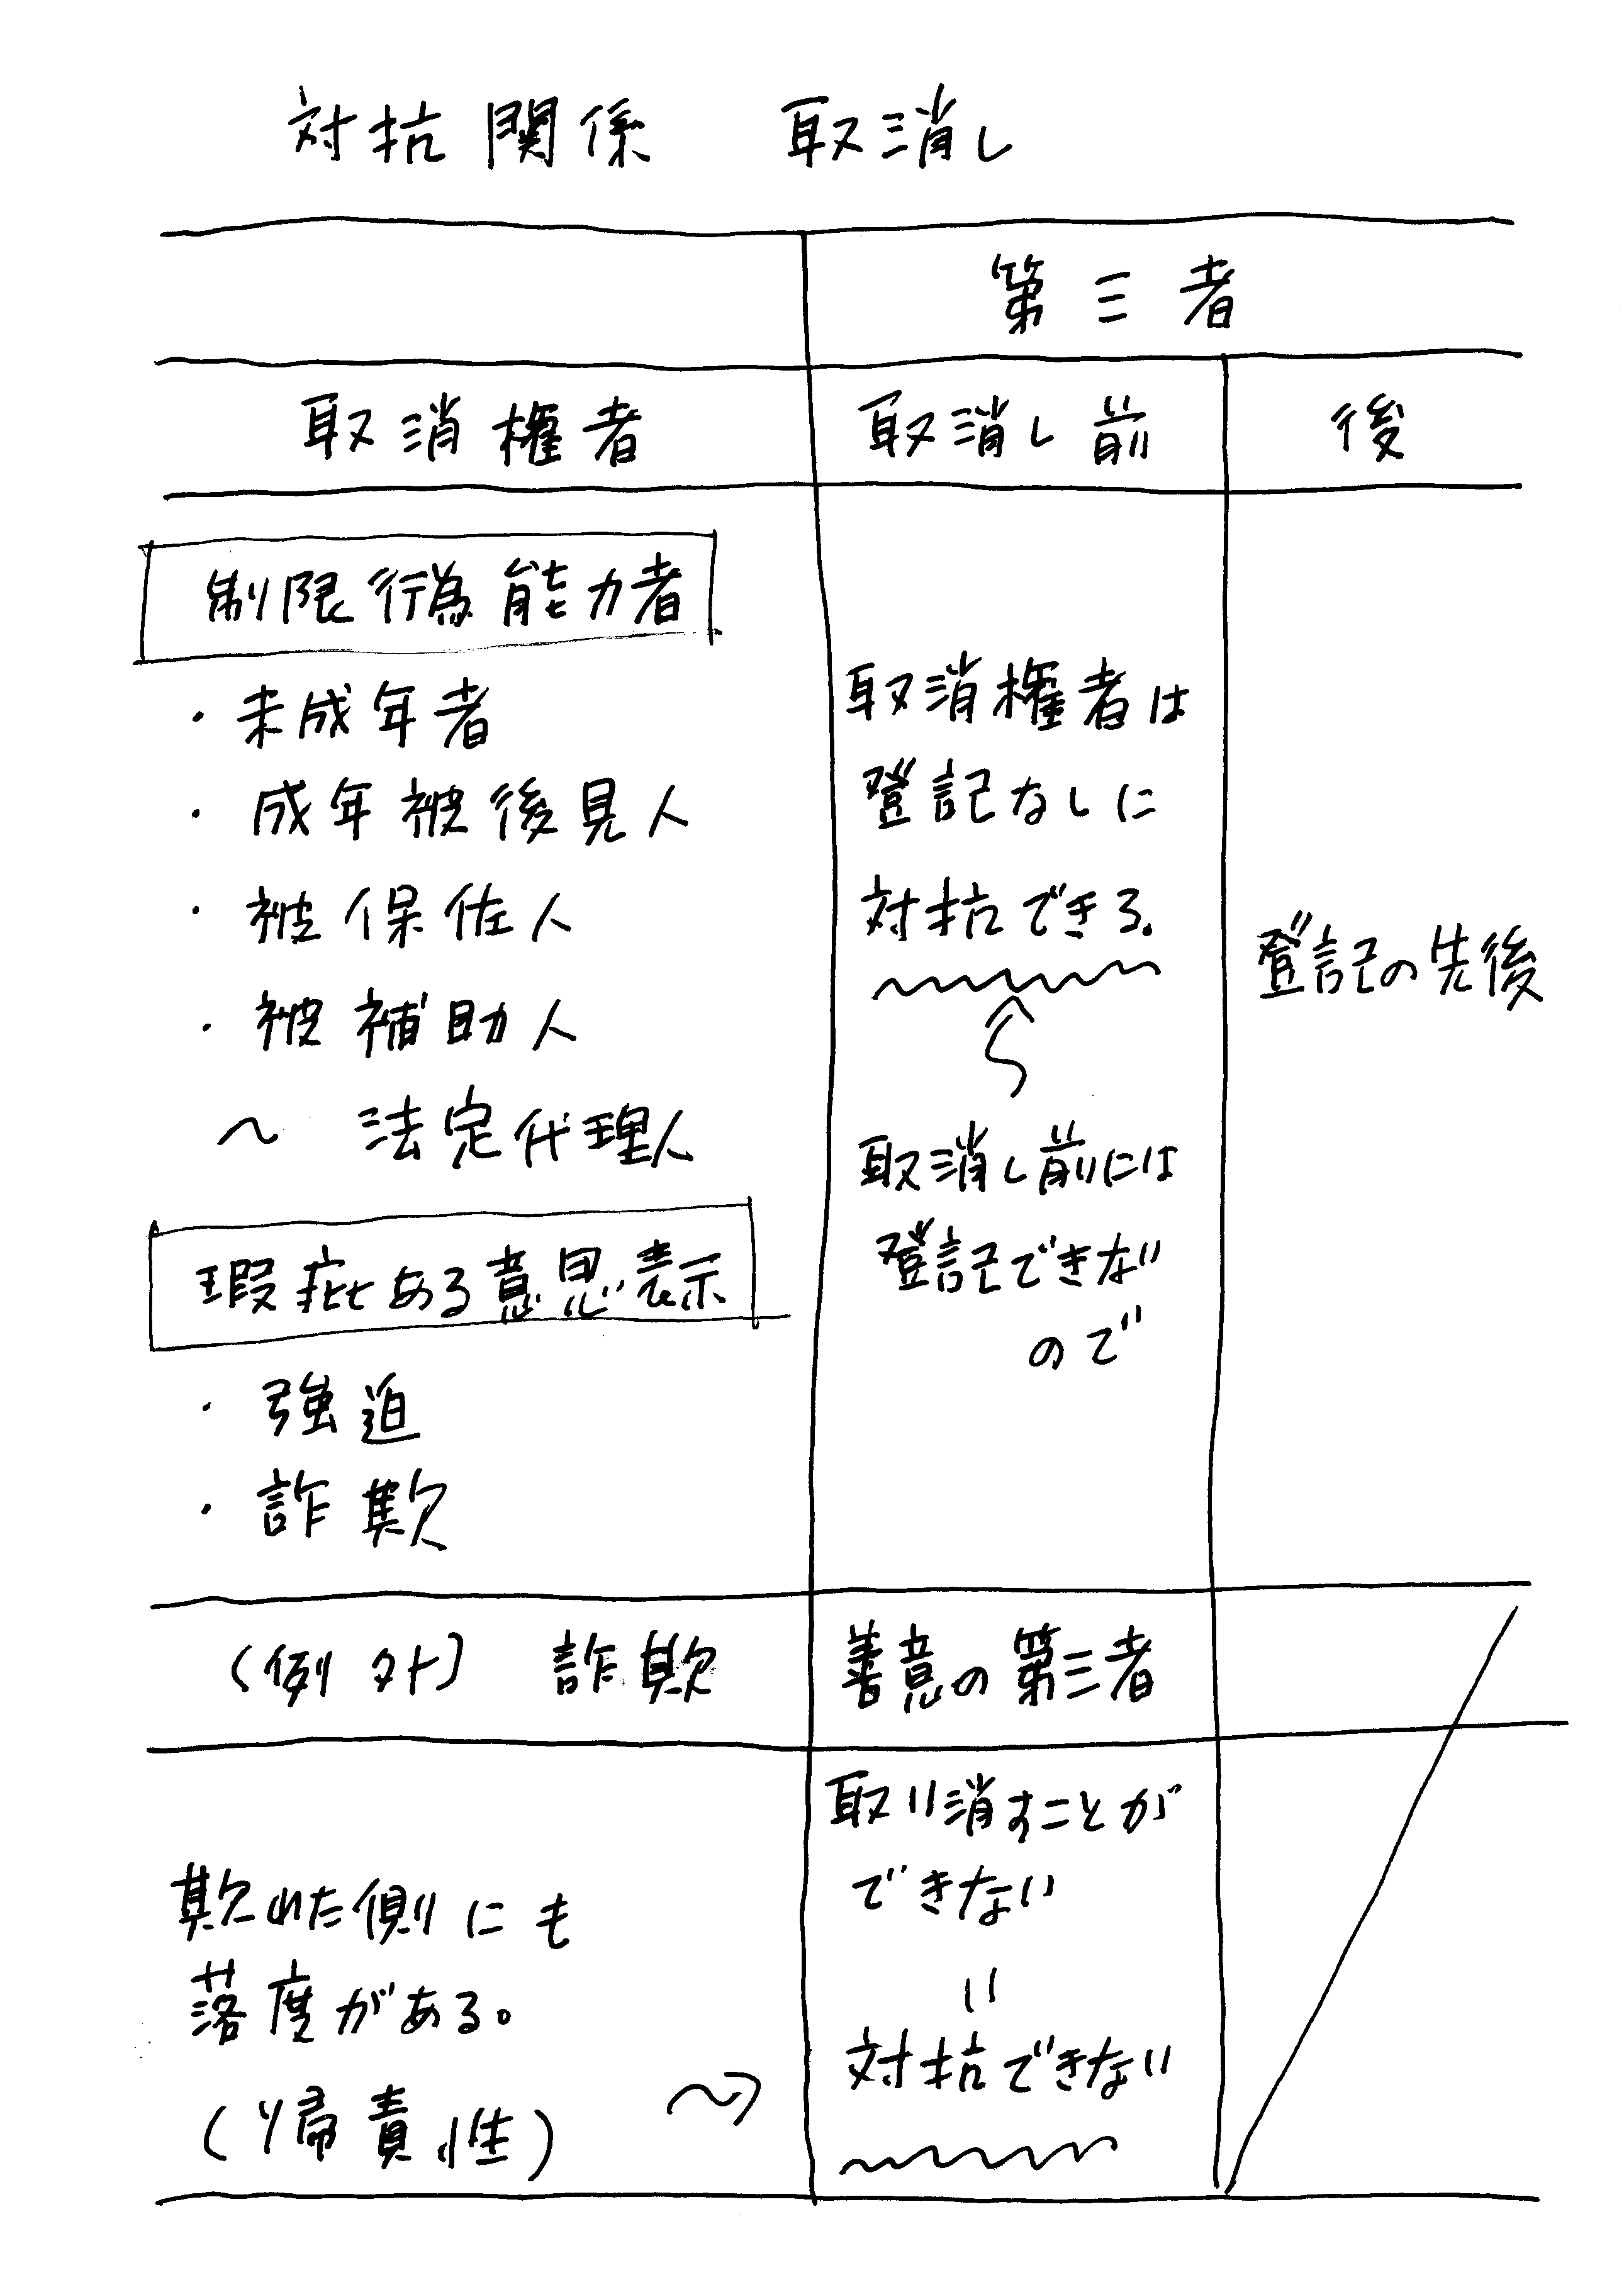 対抗関係　取消し
第三者
取消権者　取消し前　後
制限行為能力者
・未成年者
・成年被後見人
・被保佐人
・被補助人
〜 法定代理人
瑕疵ある意思表示
・強迫
・詐欺
取消権者は
登記なしに
対抗できる.
取消し前には
登記できない
ので
登記の先後
(例外) 詐欺　善意の第三者
欺れた側にも
落度がある。
(帰責性)
取り消すことが
できない
||
対抗できない